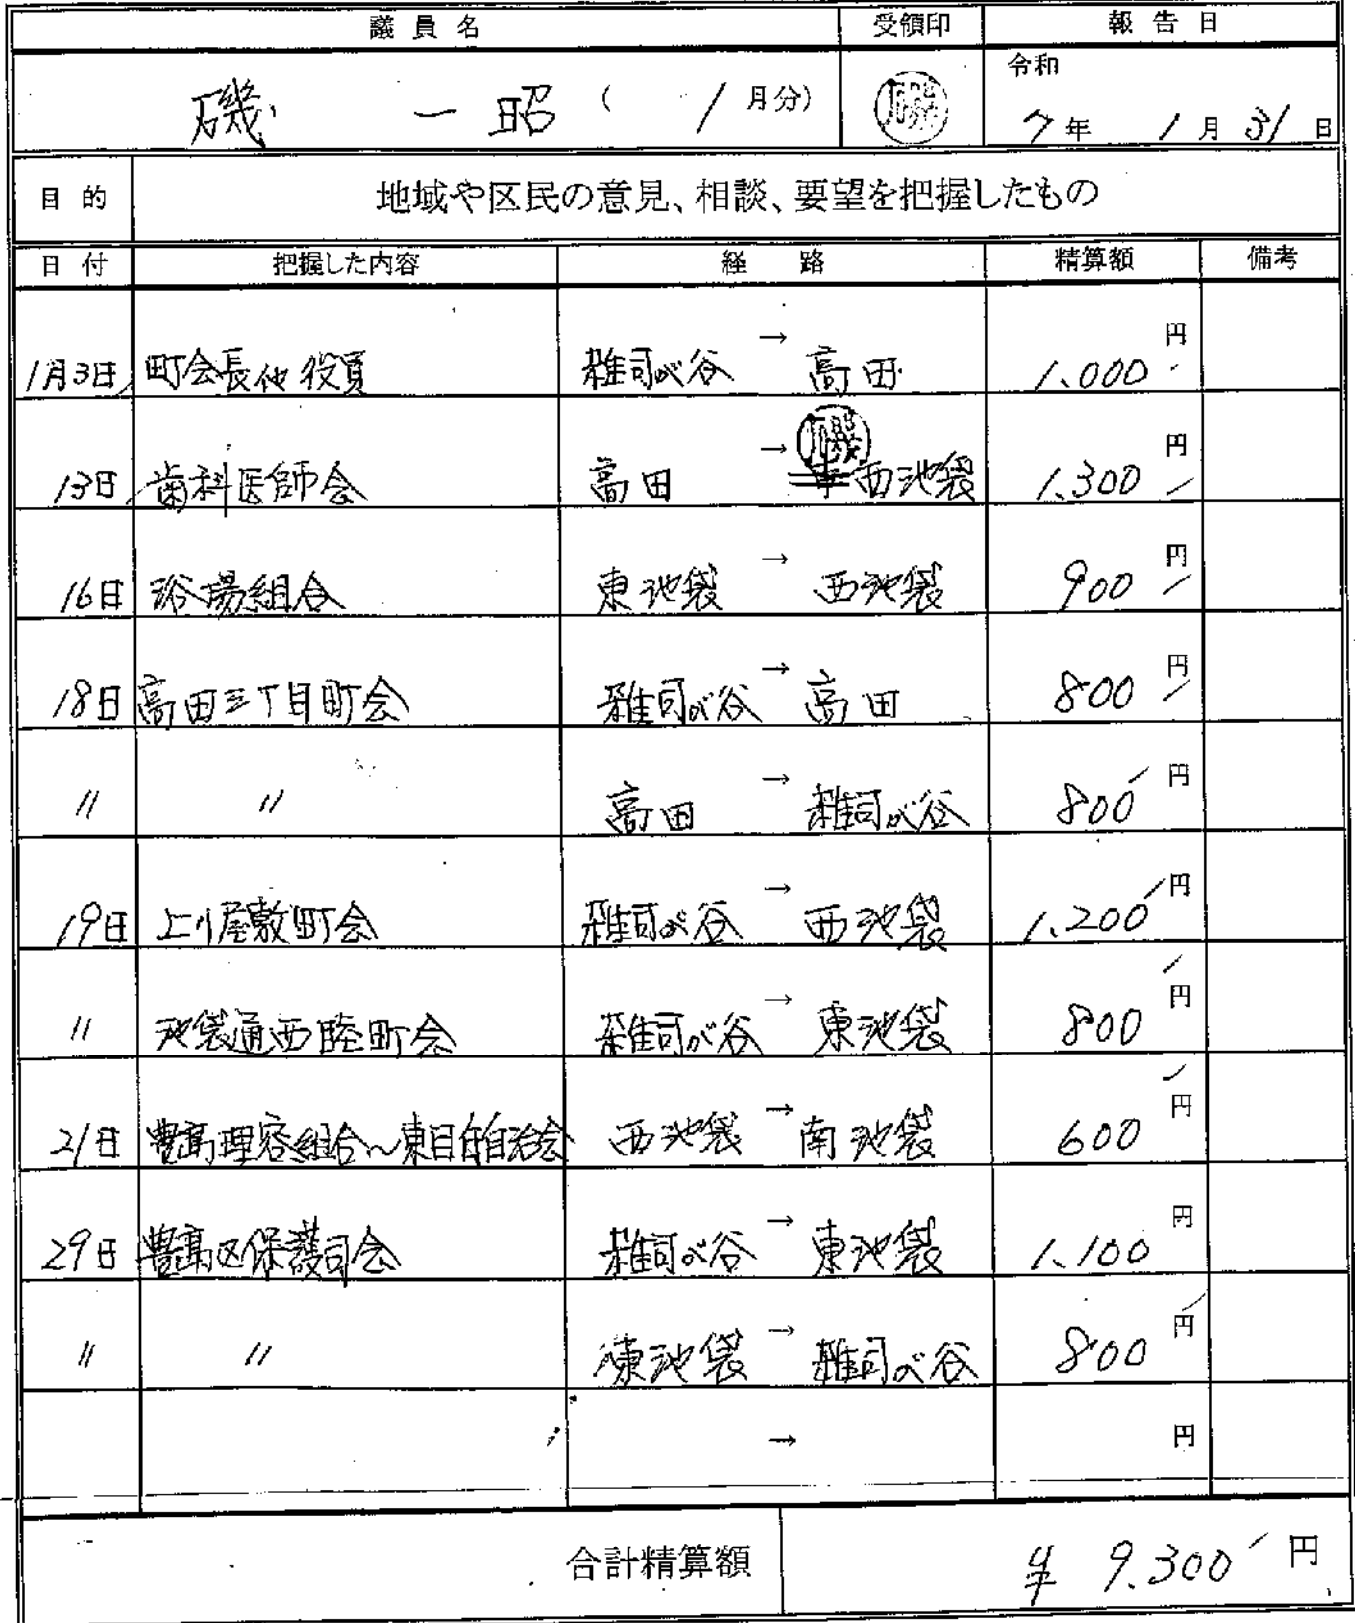 議員名 受領印 報告日
磯 一昭 ( 1月分) 磯 令和 7年 1月31日
目的 地域や区民の意見、相談、要望を把握したもの
日付 把握した内容 経路 精算額 備考
1月3日 町会長他役員 雑司が谷 → 高田 1.000円
13日 歯科医師会 高田 → 西池袋 1.300円
16日 浴場組合 東池袋 → 西池袋 900円
18日 高田三丁目町会 雑司が谷 → 高田 800円
〃 〃 高田 → 雑司が谷 800円
19日 上り屋敷町会 雑司が谷 → 西池袋 1.200円
〃 池袋通西睦町会 雑司が谷 → 東池袋 800円
21日 豊島理容組合〜東目白自治会 西池袋 → 南池袋 600円
29日 豊島区保護司会 雑司が谷 → 東池袋 1.100円
〃 〃 東池袋 → 雑司が谷 800円
→ 円
合計精算額 ¥ 9.300円